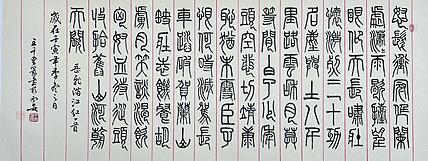 怒髮衝冠憑闌
處瀟瀟雨歇擡望
眼仰天長嘯壯
懷激烈三十功
名塵與土八千
里路雲和月莫
等閒白了少年
頭空悲切靖康
恥猶未雪臣子
恨何時滅駕長
車踏破賀蘭山
缺壯志飢餐胡
虜肉笑談渴飲
匈奴血待從頭
收拾舊山河朝
天闕
岳飛滿江紅一首
歲在壬寅年